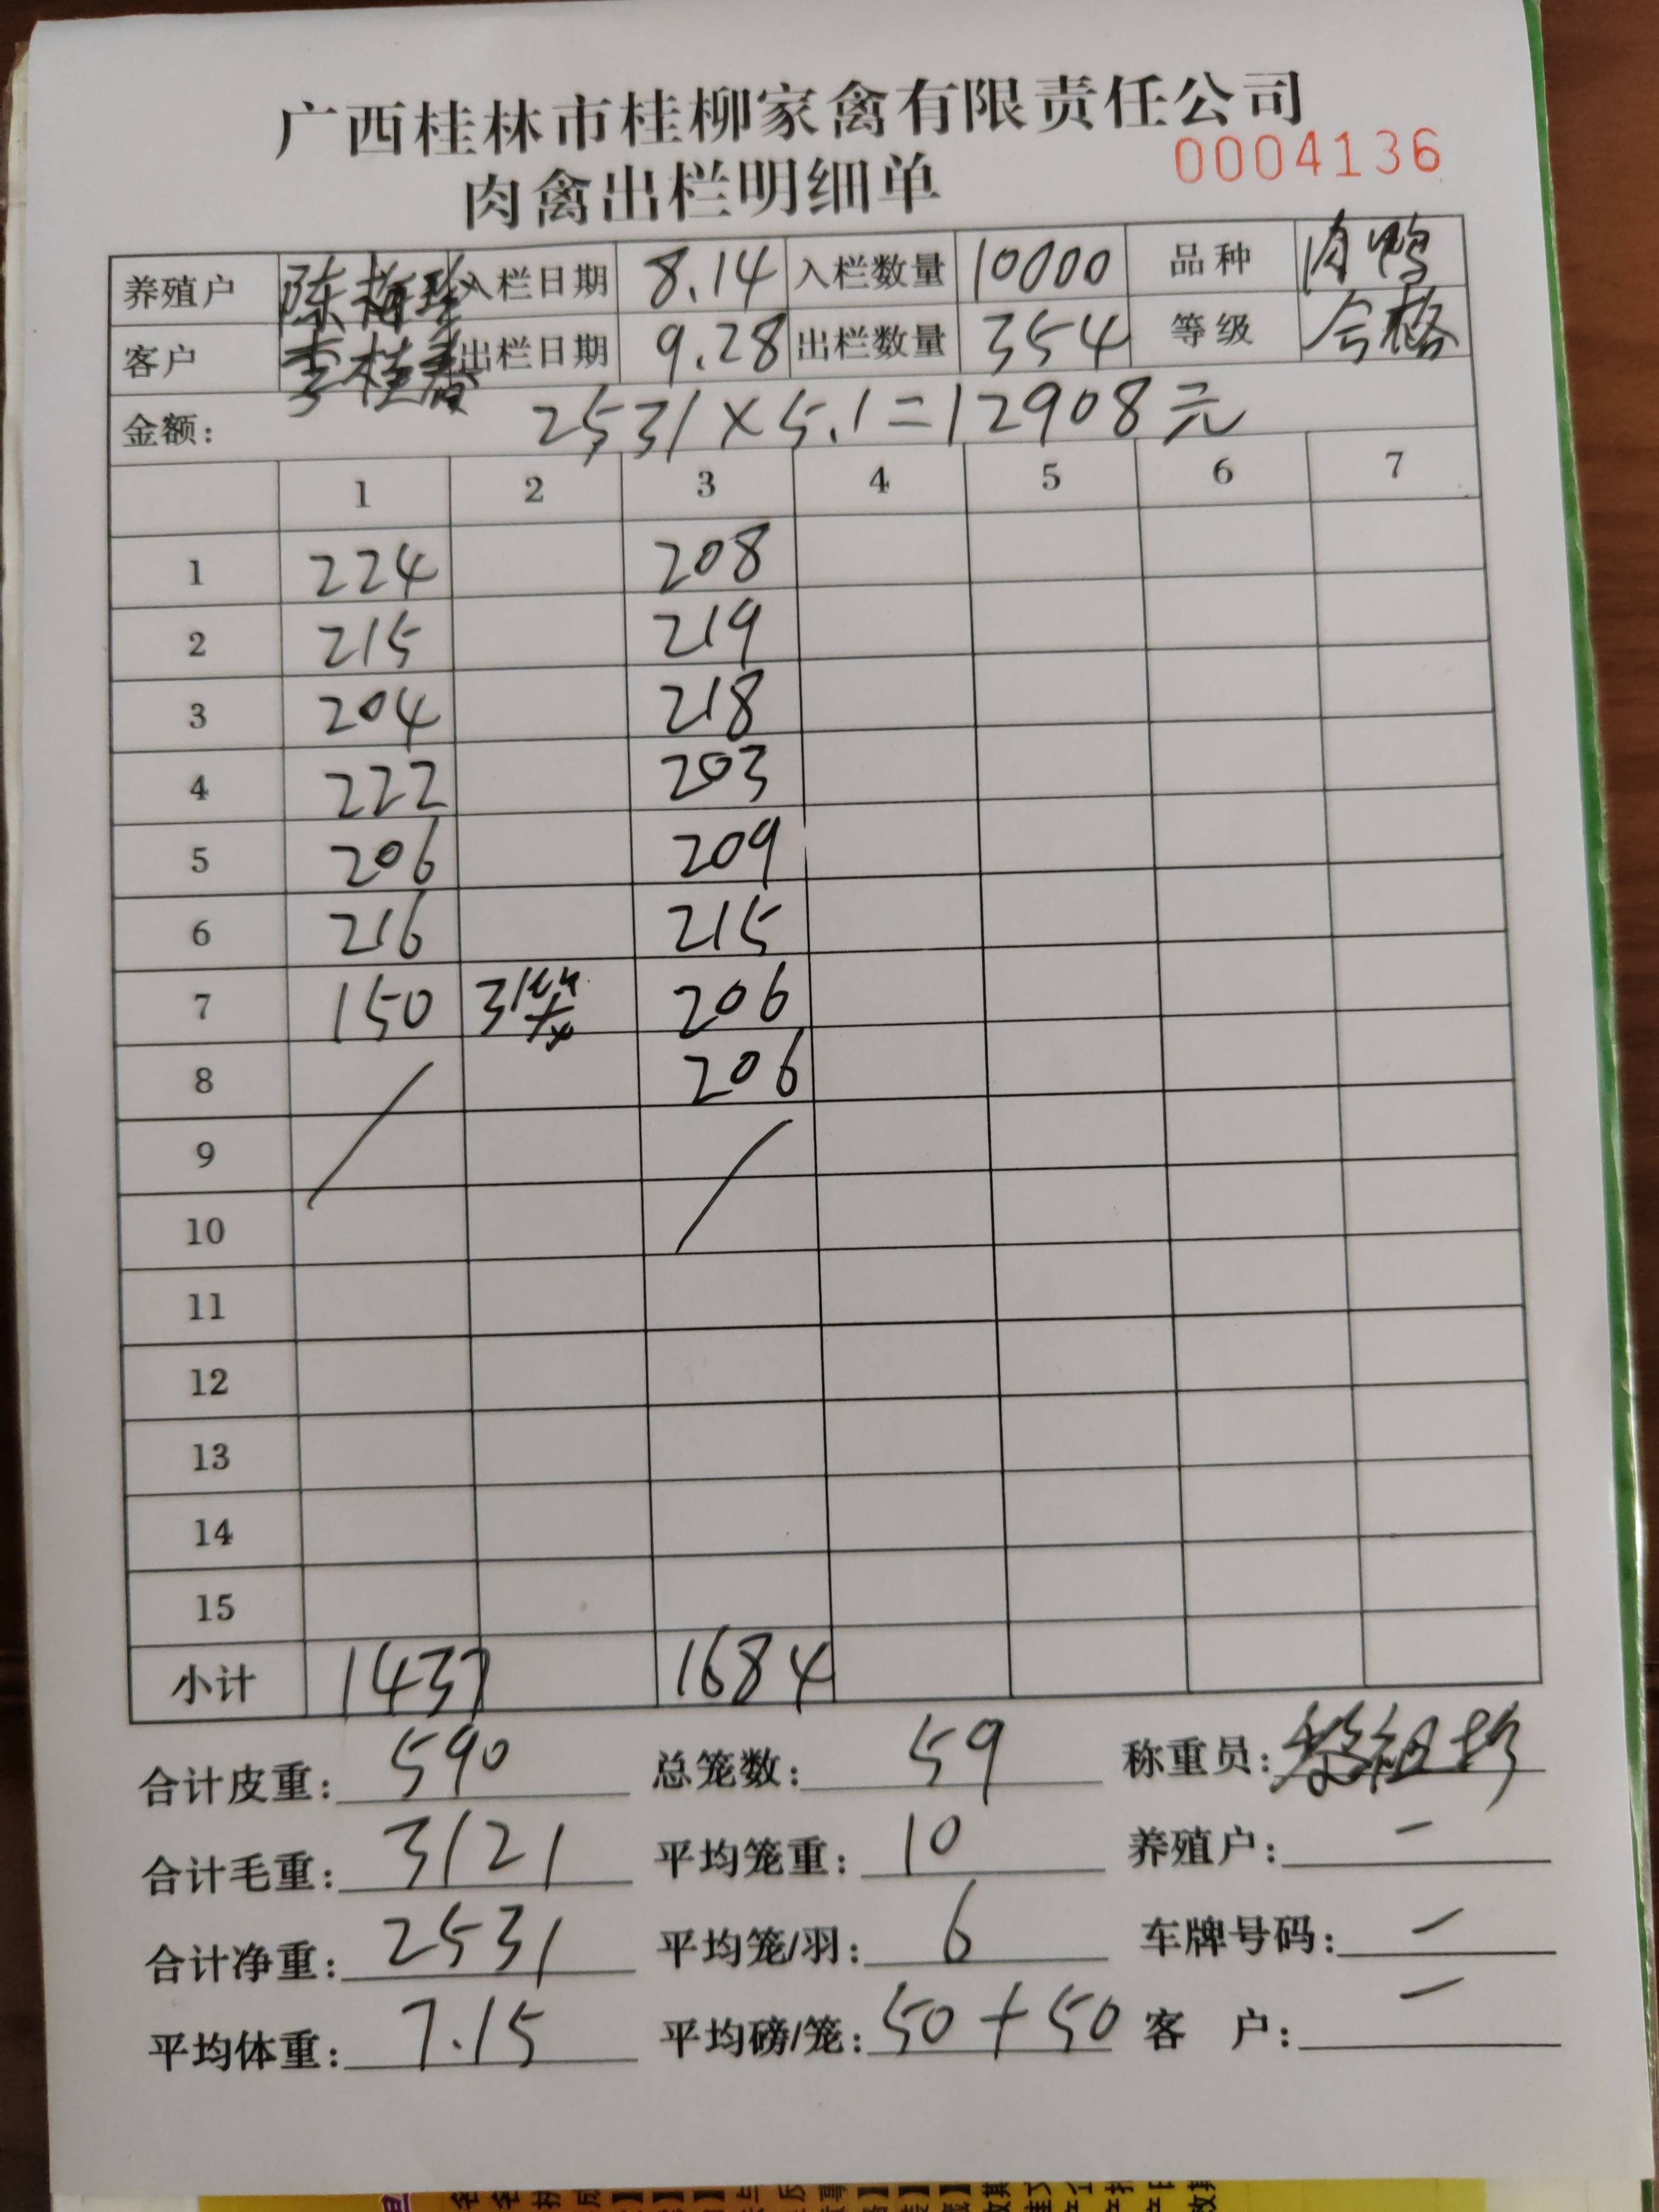 广西桂林市桂柳家禽有限责任公司
0004136
肉禽出栏明细单
养殖户 陈梅珍 入栏日期 8.14 入栏数量 10000 品种 肉鸭
客户 李桂春 出栏日期 9.28 出栏数量 354 等级 合格
金额: 2531×5.1=12908元
1 2 3 4 5 6 7
1 224 208
2 215 219
3 204 218
4 222 203
5 206 209
6 216 215
7 150 3 206
8 206
9
10
11
12
13
14
15
小计 1437 1684
合计皮重: 590 总笼数: 59 称重员:
合计毛重: 3121 平均笼重: 10 养殖户: 一
合计净重: 2531 平均笼/羽: 6 车牌号码: 一
平均体重: 7.15 平均磅/笼: 50+50 客 户: 一